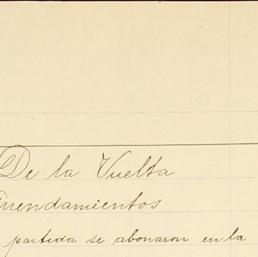 De la Vuelta
Arrendamientos
partida se abonaron en la